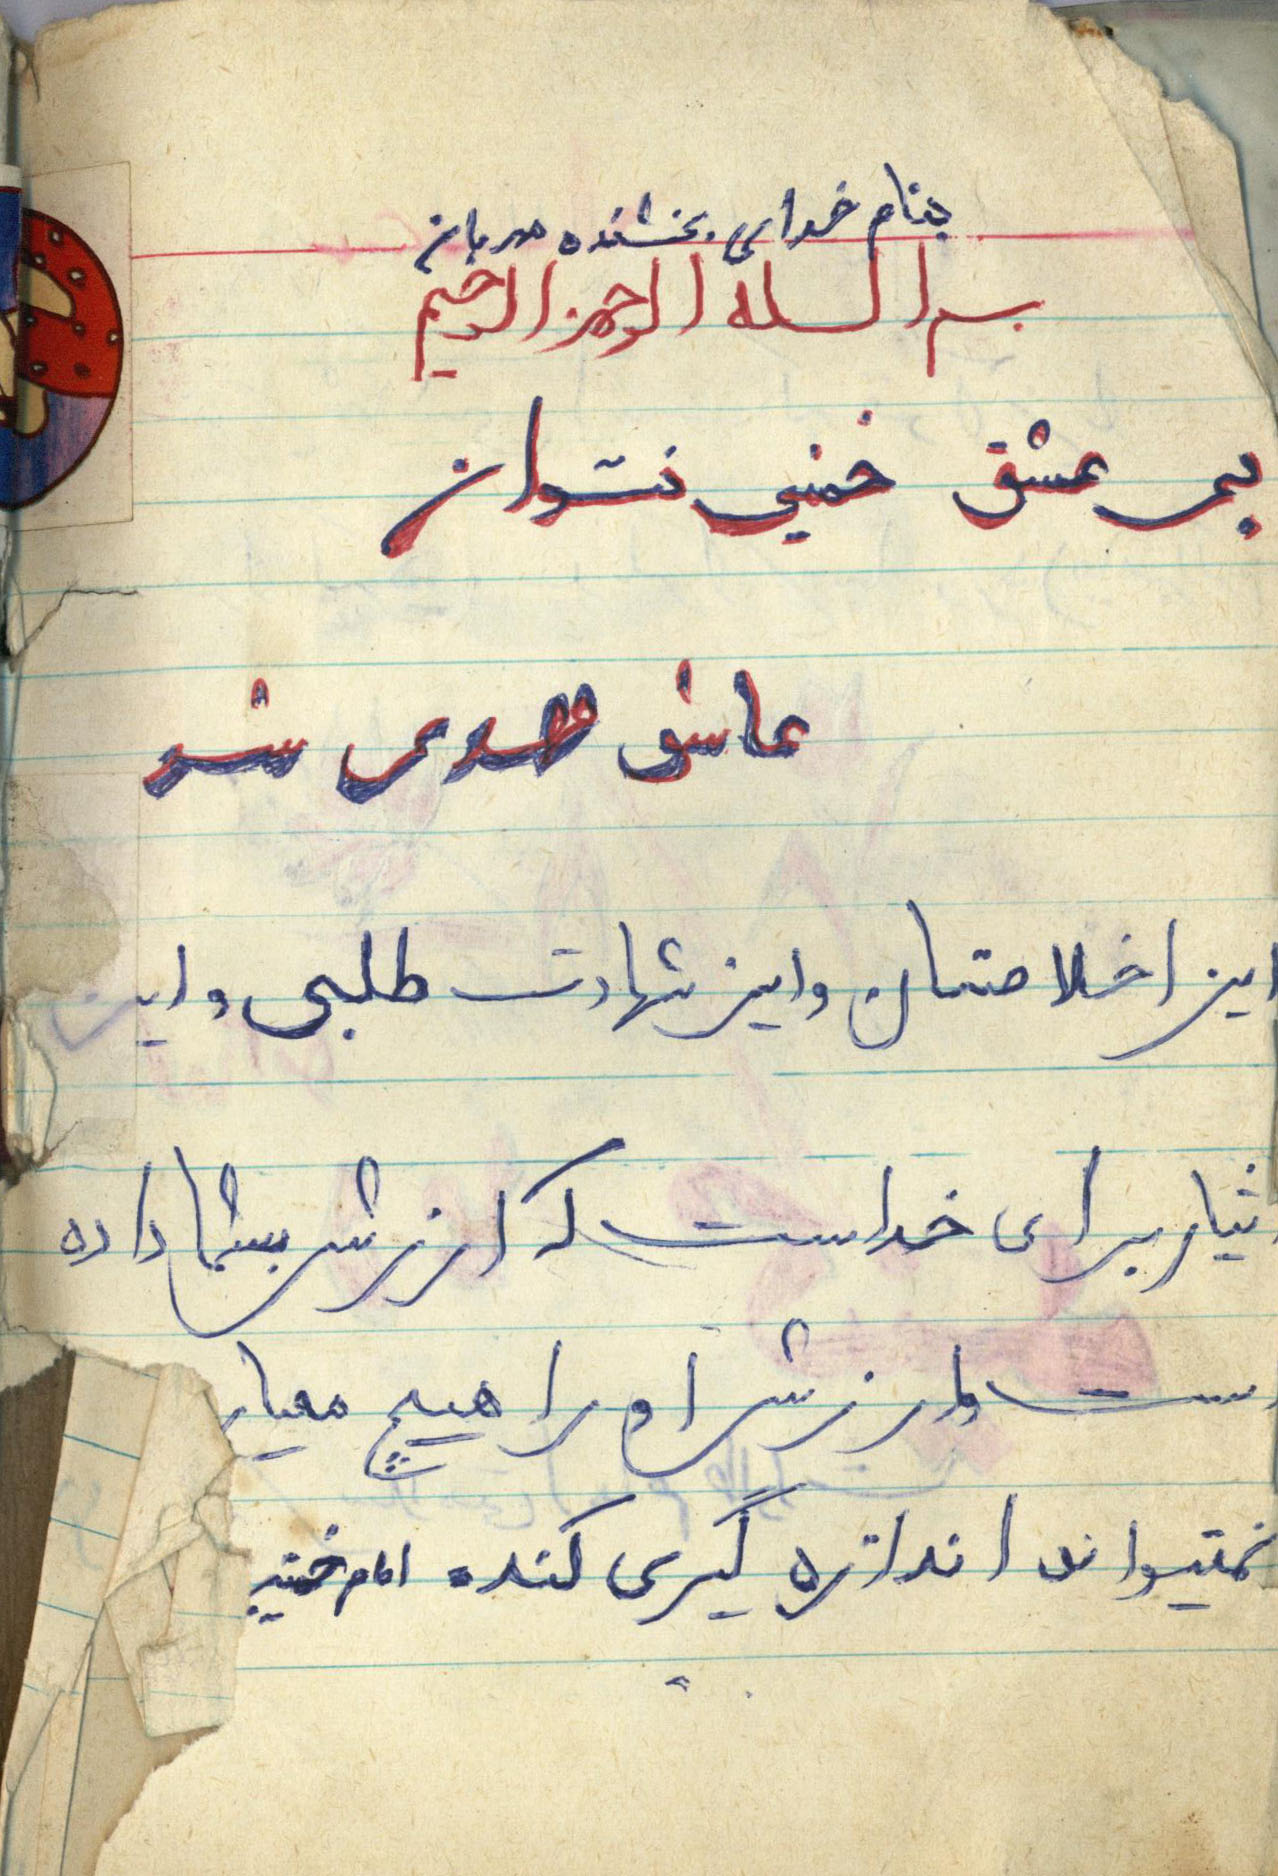 بنام خدای بخشنده مهربان
بسم الله الرحمن الرحیم
بی عشق خمینی نتوان
عاشق مهدی شد
این اخلاصتان و این شهادت طلبی و این
ایثار برای خداست که ارزش بشما داده
است و ارزش او را هیچ معیار
نمیتواند اندازه گیری کند، امام خمینی